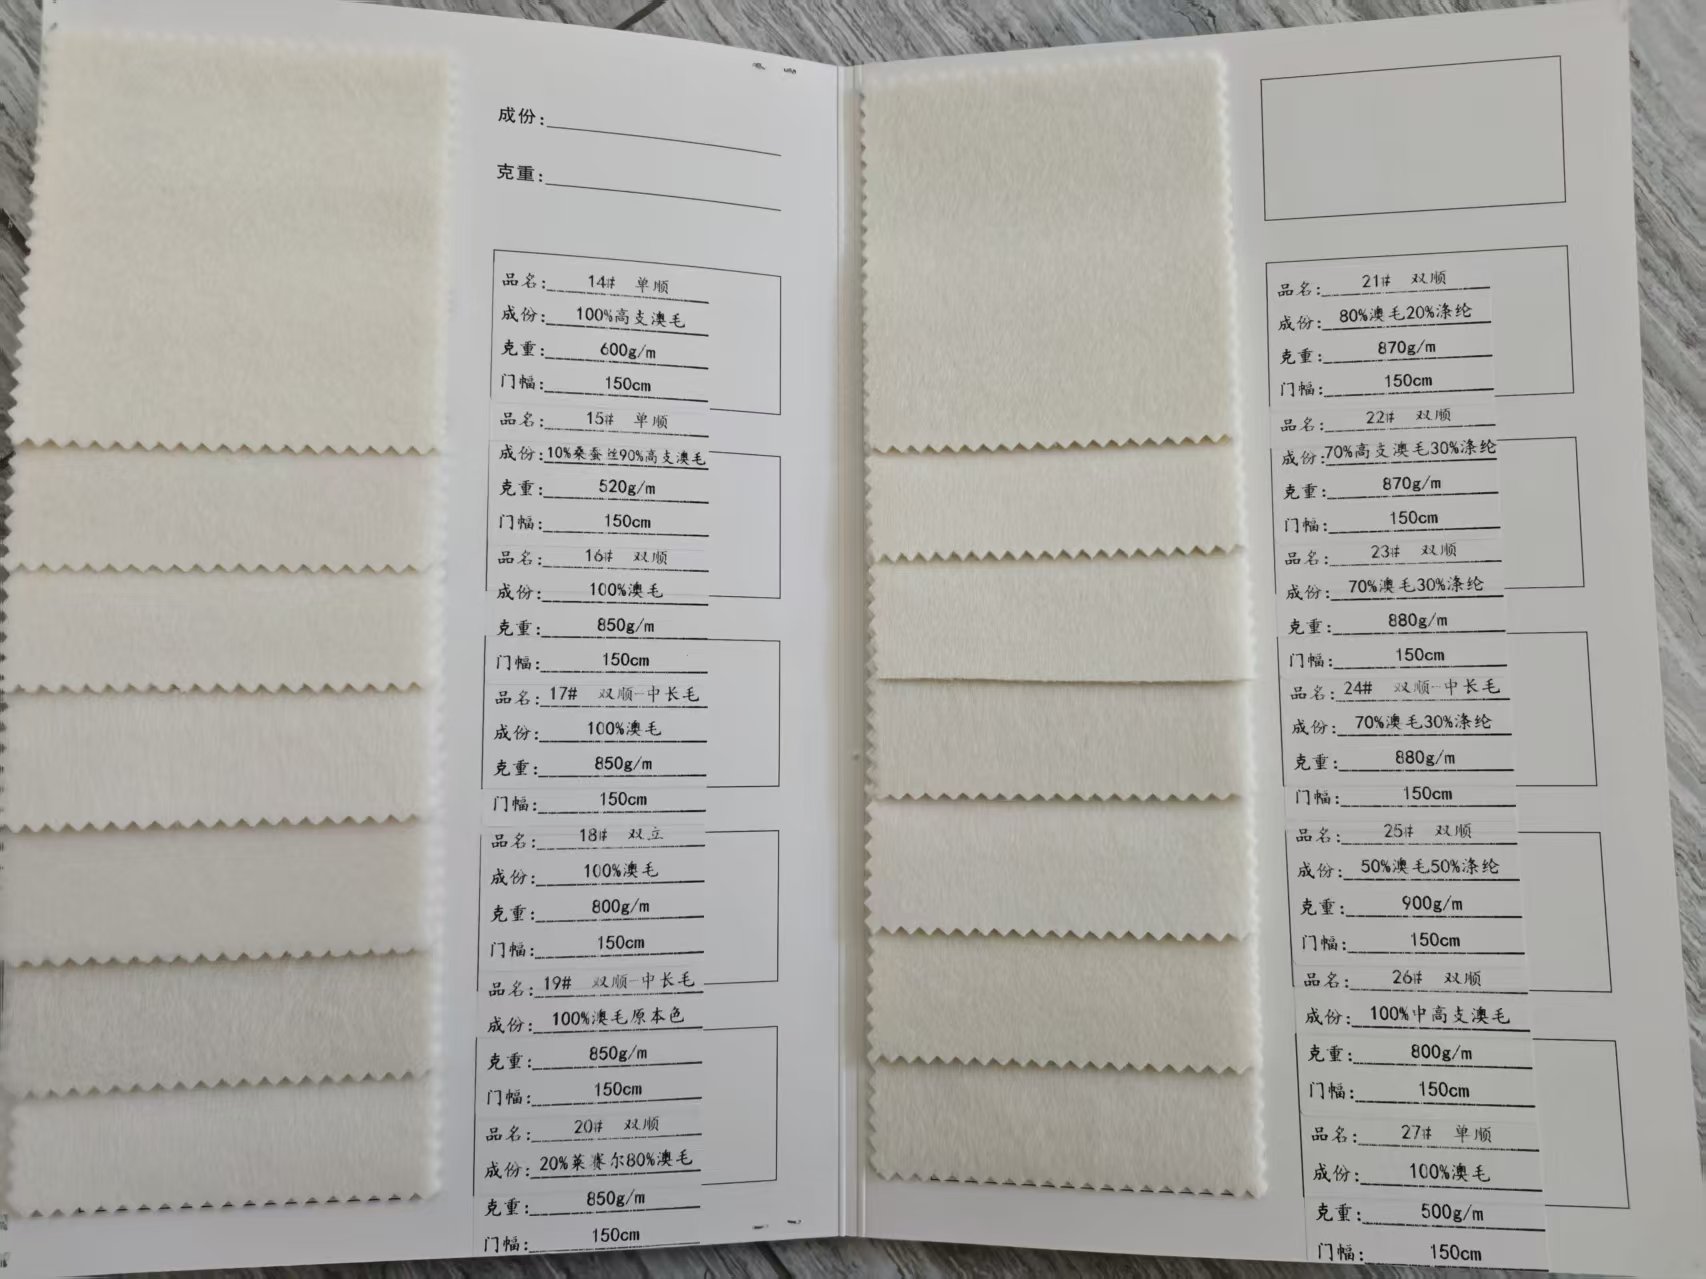 成份:
克重:
品名: 14# 单顺
成份: 100%高支澳毛
克重: 600g/m
门幅: 150cm
品名: 15# 单顺
成份: 10%桑蚕丝90%高支澳毛
克重: 520g/m
门幅: 150cm
品名: 16# 双顺
成份: 100%澳毛
克重: 850g/m
门幅: 150cm
品名: 17# 双顺-中长毛
成份: 100%澳毛
克重: 850g/m
门幅: 150cm
品名: 18# 双立
成份: 100%澳毛
克重: 800g/m
门幅: 150cm
品名: 19# 双顺-中长毛
成份: 100%澳毛原本色
克重: 850g/m
门幅: 150cm
品名: 20# 双顺
成份: 20%莱赛尔80%澳毛
克重: 850g/m
门幅: 150cm
品名: 21# 双顺
成份: 80%澳毛20%涤纶
克重: 870g/m
门幅: 150cm
品名: 22# 双顺
成份: 70%高支澳毛30%涤纶
克重: 870g/m
门幅: 150cm
品名: 23# 双顺
成份: 70%澳毛30%涤纶
克重: 880g/m
门幅: 150cm
品名: 24# 双顺-中长毛
成份: 70%澳毛30%涤纶
克重: 880g/m
门幅: 150cm
品名: 25# 双顺
成份: 50%澳毛50%涤纶
克重: 900g/m
门幅: 150cm
品名: 26# 双顺
成份: 100%中高支澳毛
克重: 800g/m
门幅: 150cm
品名: 27# 单顺
成份: 100%澳毛
克重: 500g/m
门幅: 150cm